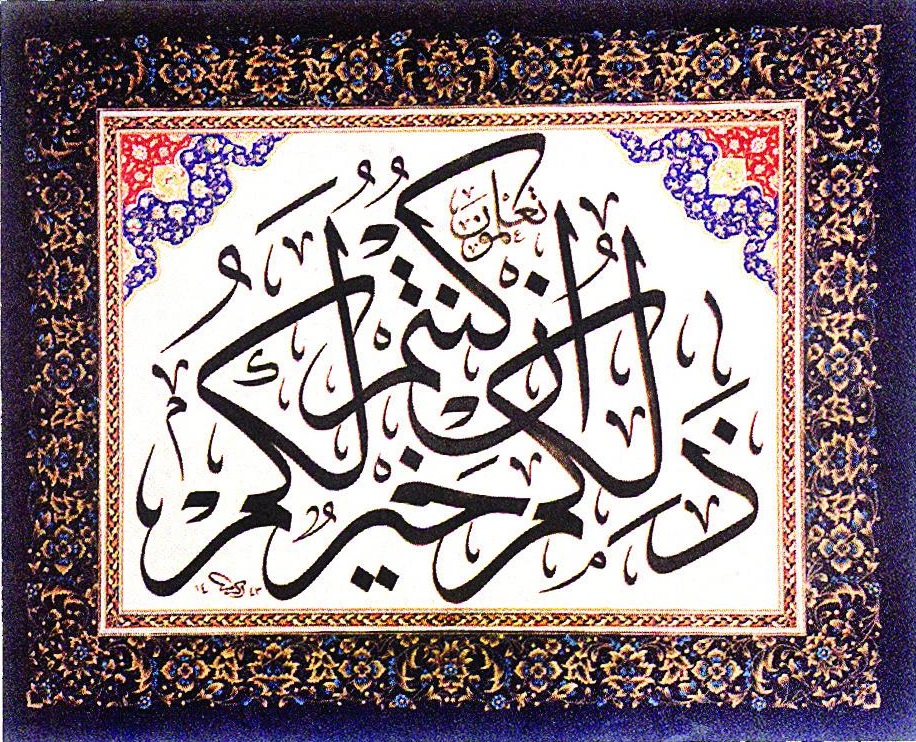 ذَٰلِكُمْ خَيْرٌ لَكُمْ إِنْ كُنْتُمْ تَعْلَمُونَ